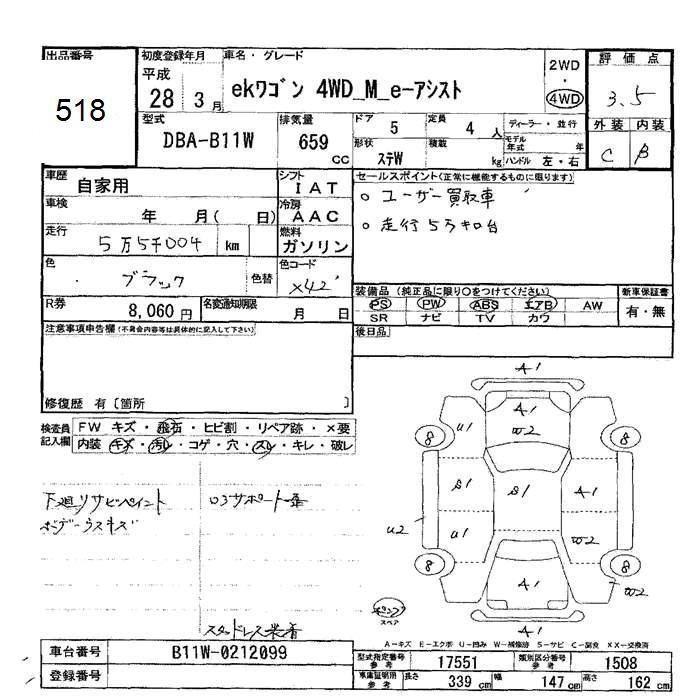 出品番号
518
初度登録年月
平成
28 3 月
車名・グレード
ekワゴン 4WD_M_e-アシスト
2WD
・
4WD
評価点
3.5
外装 内装
C B
型式
DBA-B11W
排気量
659
cc
ドア
5
定員
4 人
形状
ステW
積載
kg
ディーラー・並行
モデル年式 年
ハンドル 左・右
車歴
自家用
シフト
IAT
車検
年 月( 日)
冷房
AAC
走行
5万5千004 km
燃料
ガソリン
色
ブラック
色替
色コード
X42
R券
8,060 円
名変通知期限
月 日
セールスポイント(正常に機能するものに限ります)
○ ユーザー買取車
○ 走行5万キロ台
装備品 (純正品に限り○をつけてください)
PS PW ABS エアB AW
SR ナビ TV カワ
新車保証書
有・無
後日品
注意事項申告欄(不具合内容等は具体的に記入して下さい)
修復歴 有〔箇所 〕
検査員記入欄
FW キズ・飛石・ヒビ割・リペア跡・×要
内装 キズ・汚レ・コゲ・穴・スレ・キレ・破レ
下廻リサビペイント
ボデーウスキズ
ロアサポート歪
スタッドレス装着
A1
A1
U1
W2
8
8
S1
S1
A1
U2
U1
W2
8
8
A1
W2
A1
パンク
スペア
A-キズ E-エクボ U-凹み W-補修跡 S-サビ C-腐食 XX-交換済
車台番号
B11W-0212099
登録番号
型式指定番号
参考
17551
類別区分番号
参考
1508
車庫証明用
参考
長さ
339 cm
幅
147 cm
高さ
162 cm